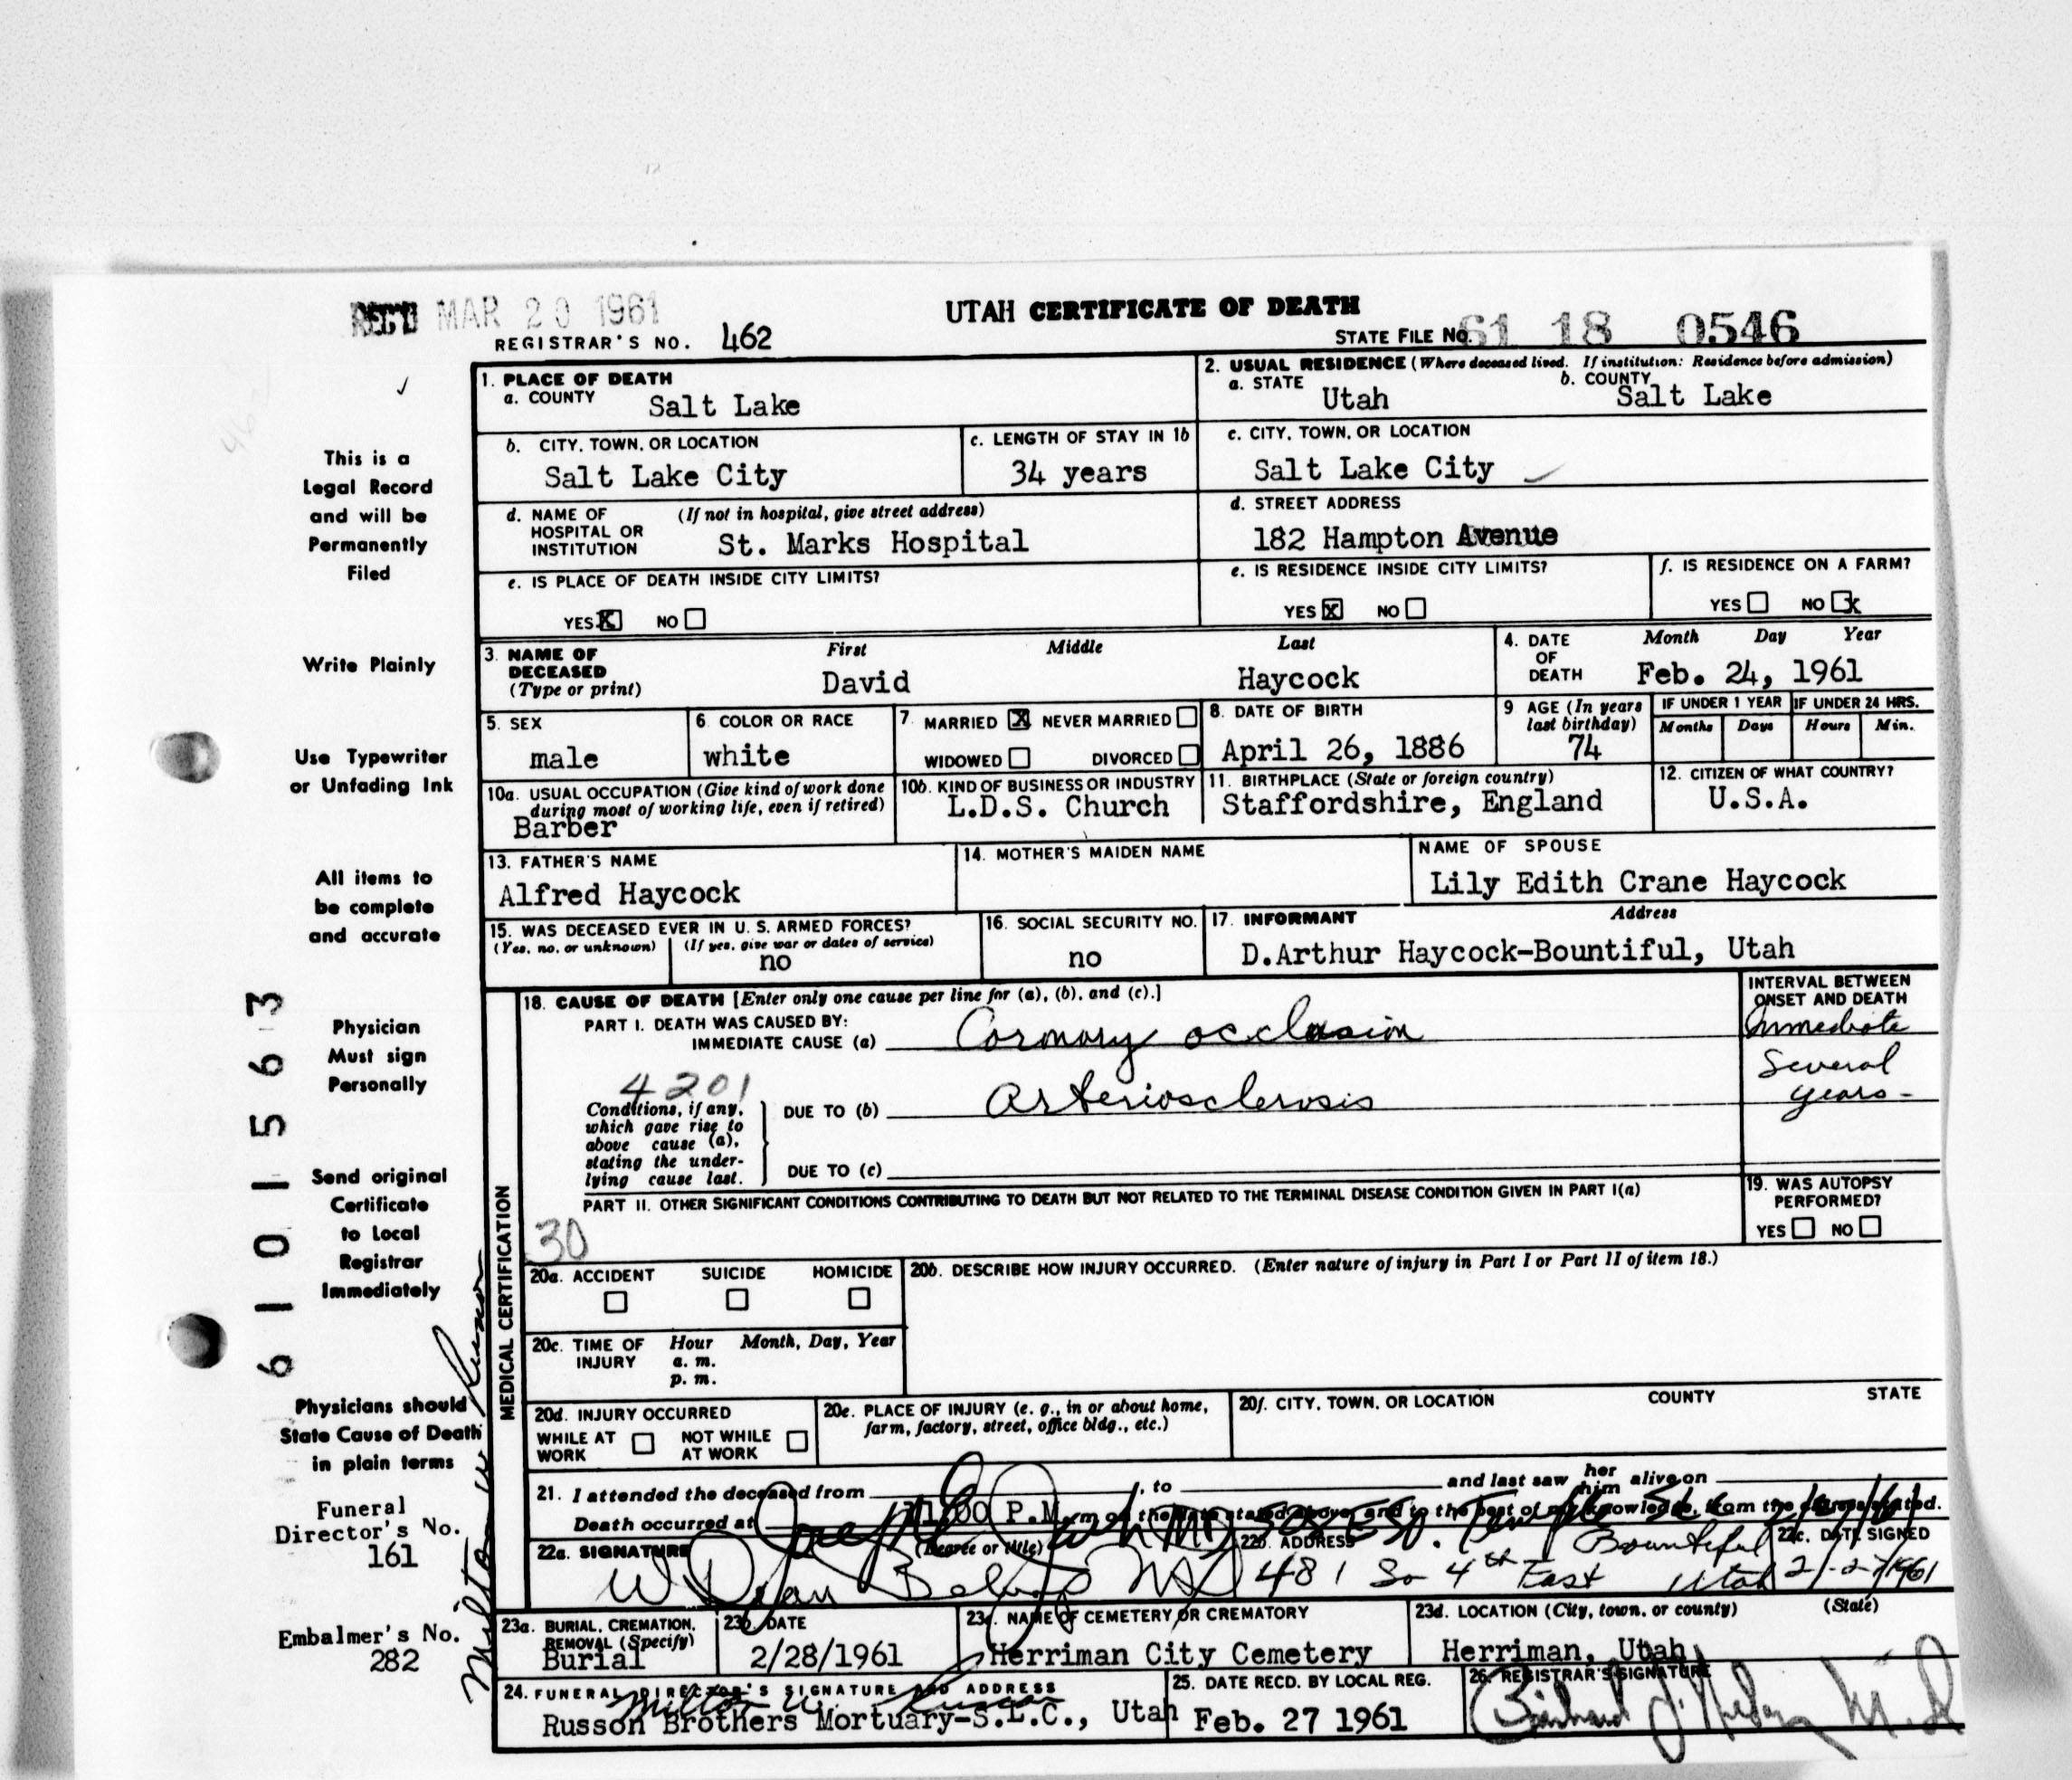 REC'D MAR 20 1961
UTAH CERTIFICATE OF DEATH
REGISTRAR'S NO. 462
STATE FILE NO. 61 18 0546
1. PLACE OF DEATH
a. COUNTY Salt Lake
2. USUAL RESIDENCE (Where deceased lived. If institution: Residence before admission)
a. STATE Utah b. COUNTY Salt Lake
b. CITY, TOWN, OR LOCATION Salt Lake City
c. LENGTH OF STAY IN 1b 34 years
c. CITY, TOWN, OR LOCATION Salt Lake City
d. NAME OF HOSPITAL OR INSTITUTION (If not in hospital, give street address) St. Marks Hospital
d. STREET ADDRESS 182 Hampton Avenue
e. IS PLACE OF DEATH INSIDE CITY LIMITS?
YES X NO
e. IS RESIDENCE INSIDE CITY LIMITS?
YES X NO
f. IS RESIDENCE ON A FARM?
YES NO X
3. NAME OF DECEASED (Type or print)
First Middle Last
David Haycock
4. DATE OF DEATH Month Day Year
Feb. 24, 1961
5. SEX male
6. COLOR OR RACE white
7. MARRIED X NEVER MARRIED
WIDOWED DIVORCED
8. DATE OF BIRTH April 26, 1886
9 AGE (In years last birthday) 74
IF UNDER 1 YEAR Months Days
IF UNDER 24 HRS. Hours Min.
10a. USUAL OCCUPATION (Give kind of work done during most of working life, even if retired)
Barber
10b. KIND OF BUSINESS OR INDUSTRY L.D.S. Church
11. BIRTHPLACE (State or foreign country) Staffordshire, England
12. CITIZEN OF WHAT COUNTRY? U.S.A.
13. FATHER'S NAME Alfred Haycock
14. MOTHER'S MAIDEN NAME
NAME OF SPOUSE Lily Edith Crane Haycock
15. WAS DECEASED EVER IN U. S. ARMED FORCES?
(Yes, no, or unknown) (If yes, give war or dates of service)
no
16. SOCIAL SECURITY NO. no
17. INFORMANT Address
D.Arthur Haycock-Bountiful, Utah
18. CAUSE OF DEATH [Enter only one cause per line for (a), (b), and (c).]
INTERVAL BETWEEN ONSET AND DEATH
PART I. DEATH WAS CAUSED BY:
IMMEDIATE CAUSE (a) Coronary occlusion Immediate
4201
Conditions, if any, which gave rise to above cause (a), stating the underlying cause last.
DUE TO (b) Arteriosclerosis Several years-
DUE TO (c)
PART II. OTHER SIGNIFICANT CONDITIONS CONTRIBUTING TO DEATH BUT NOT RELATED TO THE TERMINAL DISEASE CONDITION GIVEN IN PART I(a)
30
19. WAS AUTOPSY PERFORMED?
YES NO
20a. ACCIDENT SUICIDE HOMICIDE
20b. DESCRIBE HOW INJURY OCCURRED. (Enter nature of injury in Part I or Part II of item 18.)
20c. TIME OF INJURY Hour Month, Day, Year
a. m.
p. m.
20d. INJURY OCCURRED
WHILE AT WORK NOT WHILE AT WORK
20e. PLACE OF INJURY (e. g., in or about home, farm, factory, street, office bldg., etc.)
20f. CITY, TOWN, OR LOCATION COUNTY STATE
21. I attended the deceased from , to and last saw her him alive on
Death occurred at 11:00 P.M. m on the date stated above, and to the best of my knowledge, from the causes stated.
22a. SIGNATURE (Degree or title)
22b. ADDRESS 481 So 4th East Bountiful Utah
22c. DATE SIGNED 2/-27/1961
23a. BURIAL, CREMATION, REMOVAL (Specify) Burial
23b. DATE 2/28/1961
23c. NAME OF CEMETERY OR CREMATORY Herriman City Cemetery
23d. LOCATION (City, town, or county) (State) Herriman, Utah
24. FUNERAL DIRECTOR'S SIGNATURE AND ADDRESS
Milton W. Russon
Russon Brothers Mortuary-S.L.C., Utah
25. DATE RECD. BY LOCAL REG. Feb. 27 1961
26. REGISTRAR'S SIGNATURE
MEDICAL CERTIFICATION
This is a
Legal Record
and will be
Permanently
Filed
Write Plainly
Use Typewriter
or Unfading Ink
All items to
be complete
and accurate
Physician
Must sign
Personally
Send original
Certificate
to Local
Registrar
Immediately
Physicians should
State Cause of Death
in plain terms
Funeral
Director's No.
161
Embalmer's No.
282
Milton W Russon
6101563